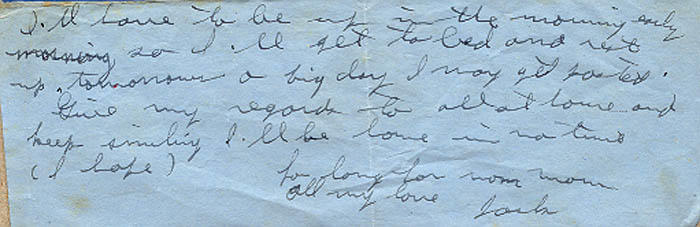 I.ll have to be up in the morning early
morning so I.ll get to bed and rest
up, tomorrows a big day I may get posted.
Give my regards to all at home and
keep smiling I.ll be home in no time
(I hope)
So long for now mom
All my love Jack